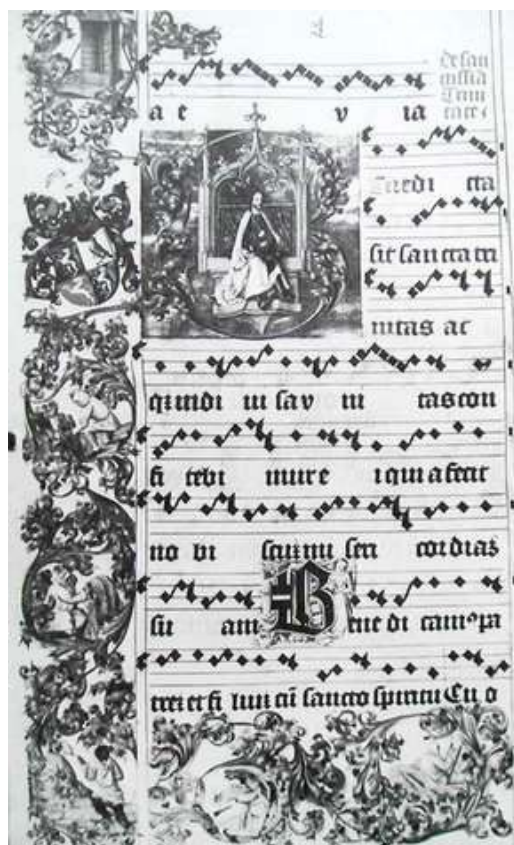 a e v ia
de san
ctissia
Trini
tate
nedi cta
sit sancta tri
nitas at
qz indi ui sa v ni tas con
fi tebi mur e i qui a fecit
no bi scum mi seri cordiaz
su am B ene di cam⁹ pa
trei et fi lium cū sancto spiritu Eu o